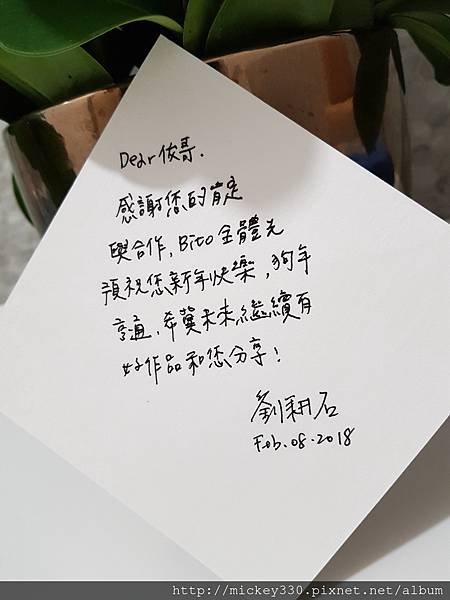 Dear 俊哥.
感謝您的肯定
與合作, Bito全體先
預祝您新年快樂, 狗年
亨通, 希冀未來繼續有
好作品和您分享!
劉耕石
Feb. 08. 2018
http://mickey330.pixnet.net/album